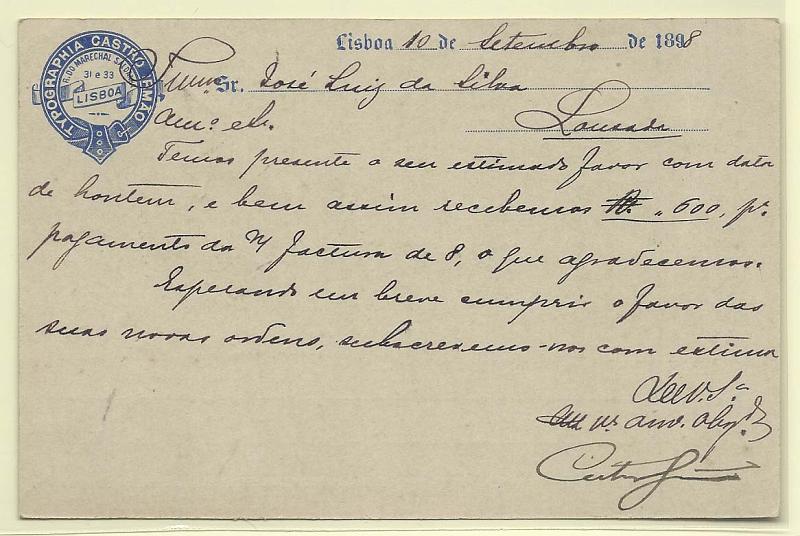 TYPOGRAPHIA CASTRO IRMÃO
R. DO MARECHAL SALDANHA
31 e 33
LISBOA
Lisboa 10 de Setembro de 1898
Illmo. Sr. José Luiz da Silva
Lousada
Amº e Sr.
Temos presente o seu estimado favor com data
de hontem, e bem assim recebemos Rs. 600, pª.
pagamento da n/ factura de 8, o que agradecemos.
Esperando em breve cumprir o favor das
suas novas ordens, subscrevemo-nos com estima
De V. Sª
Castro Irmão